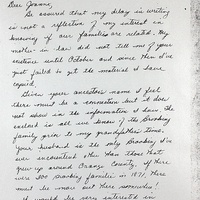 Dear Joanne,
Be assured that my delay in writing
is not a reflection of my interest in
knowing if our families are related. My
mother-in-law did not tell me of your
existence until October and since then I've
just failed to get the material I have
copied.
Given your ancestors name I feel
there must be a connection but it does
not show in the information I have. The
enclosed is all we know of the
family prior to my grandfather's time.
Your husband is the only I've
ever encountered other than those that
grew up around Orange County. If there
were families in 1871, there
must be more out there somewhere!
I would be very interested in